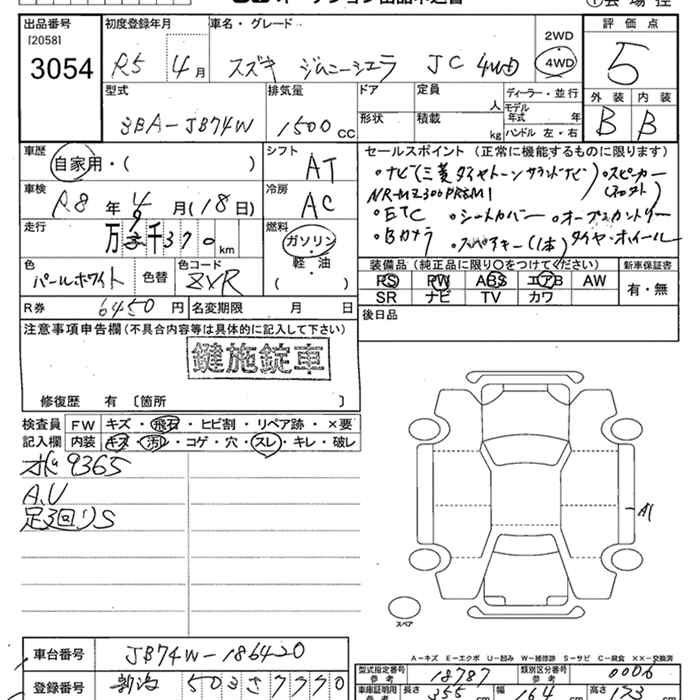 オークション出品申込書
出品番号 [2058] 3054
初度登録年月 R5年 4月
車名・グレード スズキ ジムニーシエラ JC 4WD
2WD
4WD
評価点 5
外装 内装
B B
型式 3BA-JB74W
排気量 1500cc
ドア
形状
定員 人
積載 kg
ディーラー・並行
モデル年式 年
ハンドル 左・右
車歴 自家用・( )
シフト AT
車検 R8年 4月(18日)
冷房 AC
走行 万 9千370km
燃料 ガソリン
軽・油
( )
色 パールホワイト 色替
色コード ZVR
R券 6450円 名変期限 月 日
セールスポイント (正常に機能するものに限ります)
・ナビ(三菱ダイヤトーンサウンドナビ) ・スピーカー
NR-MZ300PREMI
・ETC ・シートカバー ・オープンカントリー
・Bカメラ ・スペアタイヤー(1本) タイヤ・ホイール
装備品 (純正品に限り○をつけてください) 新車保証書
PS PW ABS エアB AW 有・無
SR ナビ TV カワ
後日品
注意事項申告欄 (不具合内容等は具体的に記入して下さい)
鍵施錠車
修復歴 有 〔箇所 〕
検査員 FW キズ・飛石・ヒビ割・リペア跡・×要
記入欄 内装 キズ・汚レ・コゲ・穴・スレ・キレ・破レ
9365
A.U
足廻りS
A1
スペア
A-キズ E-エクボ U-凹み W-補修跡 S-サビ C-腐食 XX-交換済
車台番号 JB74W-186420
登録番号 新潟 503さ7770
型式指定番号 参考 18787
類別区分番号 参考 0006
車庫証明用 参考 長さ 355cm 幅 164cm 高さ 173